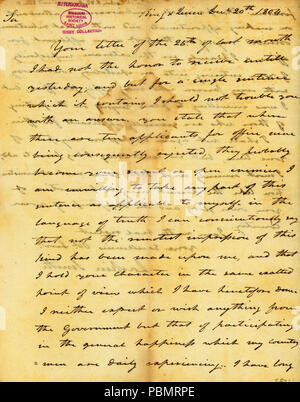 King & Queen Dec 20th 1804
JEFFERSONIAN
HISTORICAL
SOCIETY
BIXBY COLLECTION
Sir
Your letter of the 28th of last month
I had not the honor to receive untill
yesterday, and but for a single sentence
which it contains I should not trouble you
with an answer. you state that when
there are ten applicants for office nine
being consequently rejected, they probably
become your enemies. I
am unwilling to take any part of this
sentence as applicable to myself, in the
language of truth I can conscientiously say
that not the remotest impression of this
kind has been made upon me, and that
I hold your character in the same exalted
point of view which I have heretofore done.
I neither expect or wish any thing from
the Government but that of participating
in the general happiness which my country
=men are daily experiencing. I have long
alamy
Image ID: PBMRPE
www.alamy.com